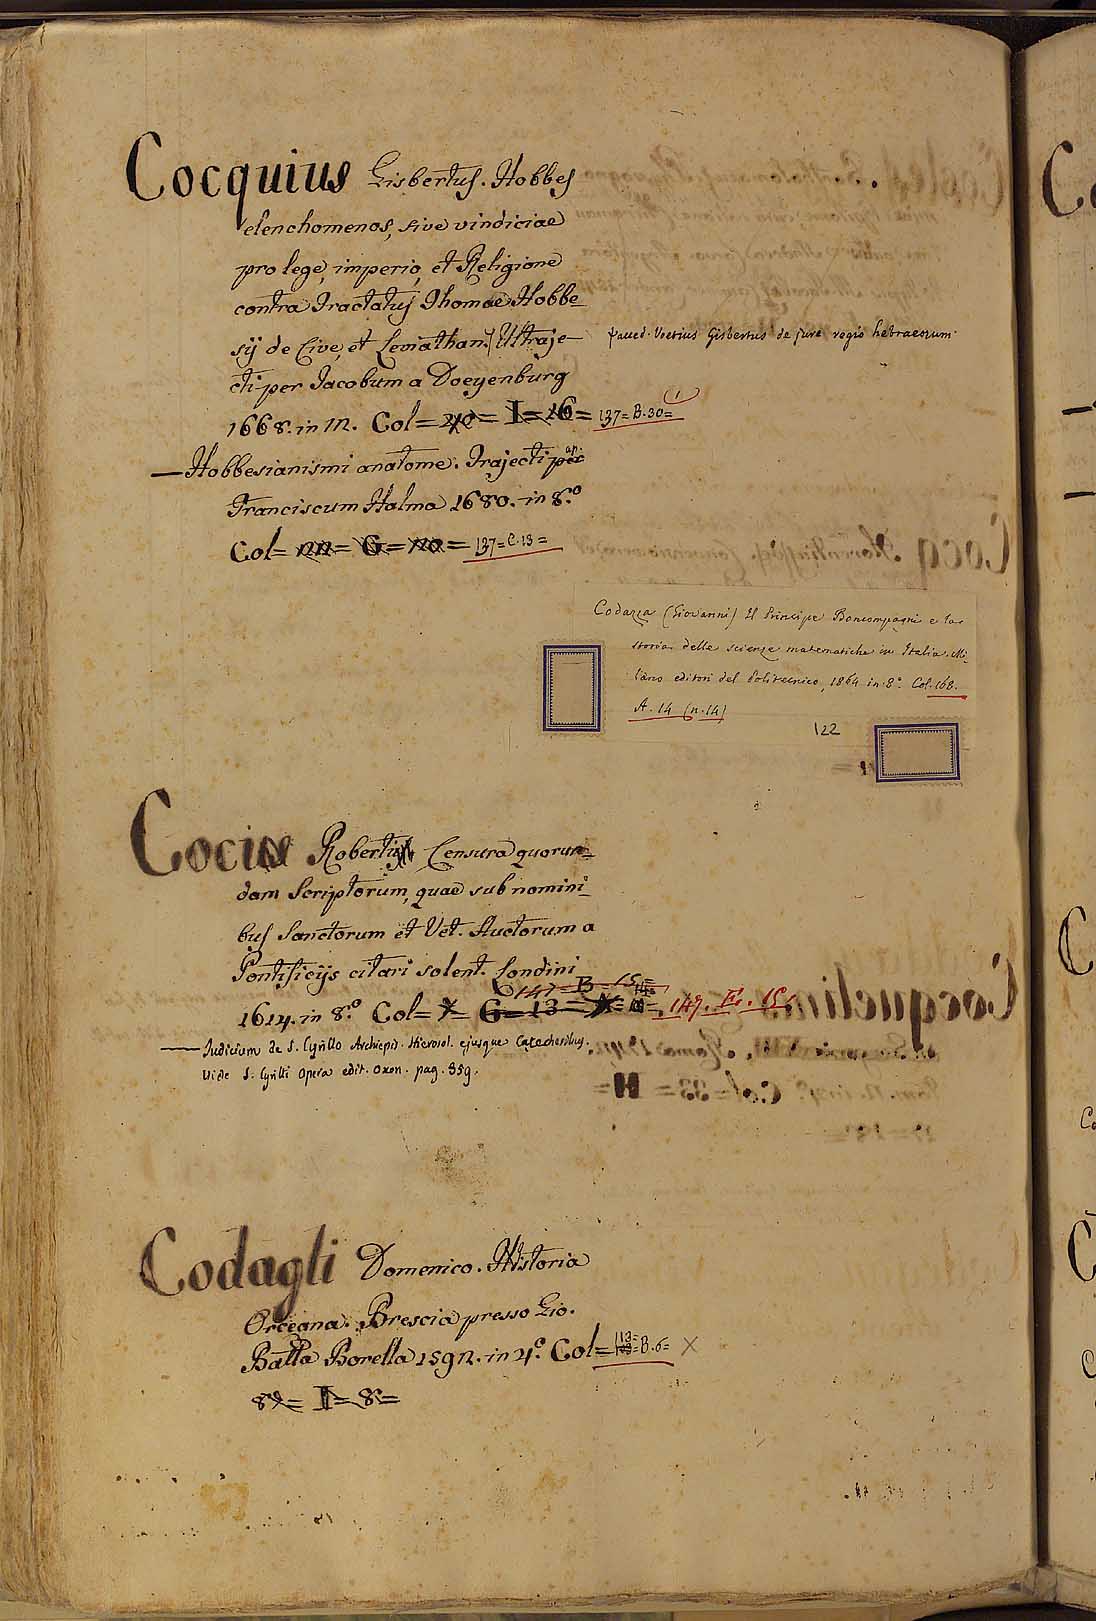 Cocquius Gisbertus. Hobbes
elenchomenos, sive vindiciae
pro lege, imperio, et Religione
contra Tractatus Thomae Hobbe=
sij de Cive, et Leviathan. Ultraje=
cti per Jacobum a Doeyenburg
1668. in 12. Col= = I= 16= 137= B. 30=
praeced. Voetius Gisbertus de jure regio hebraeorum.
— Hobbesianismi anatome. Trajecti per ap.
Franciscum Halma 1680. in 8.º
Col= = G= = 137= C. 13=
Codazza (Giovanni) Il Principe Boncompagni e la
storia delle scienze matematiche in Italia. Mi-
lano editori del Politecnico, 1864 in 8º. Col. 168.
A. 14 (n. 14)
122
Cocus Robertus Censura quorun=
dam Scriptorum, quae sub nomini=
bus Sanctorum et Vet. Auctorum a
Pontificijs citari solent. Londini
147 B= 15=
1614. in 8.º Col= = G= 13= 147. E. 15.
— Judicium de S. Cyrillo Archiepis. Hierosol. ejusque Catechesibus.
Vide S. Cyrilli Opera edit. Oxon. pag. 359.
Codagli Domenico. Historia
Orceana. Brescia presso Gio.
Batta Borella 1592. in 4.º Col= 113= B. 6= X
= I= 8=